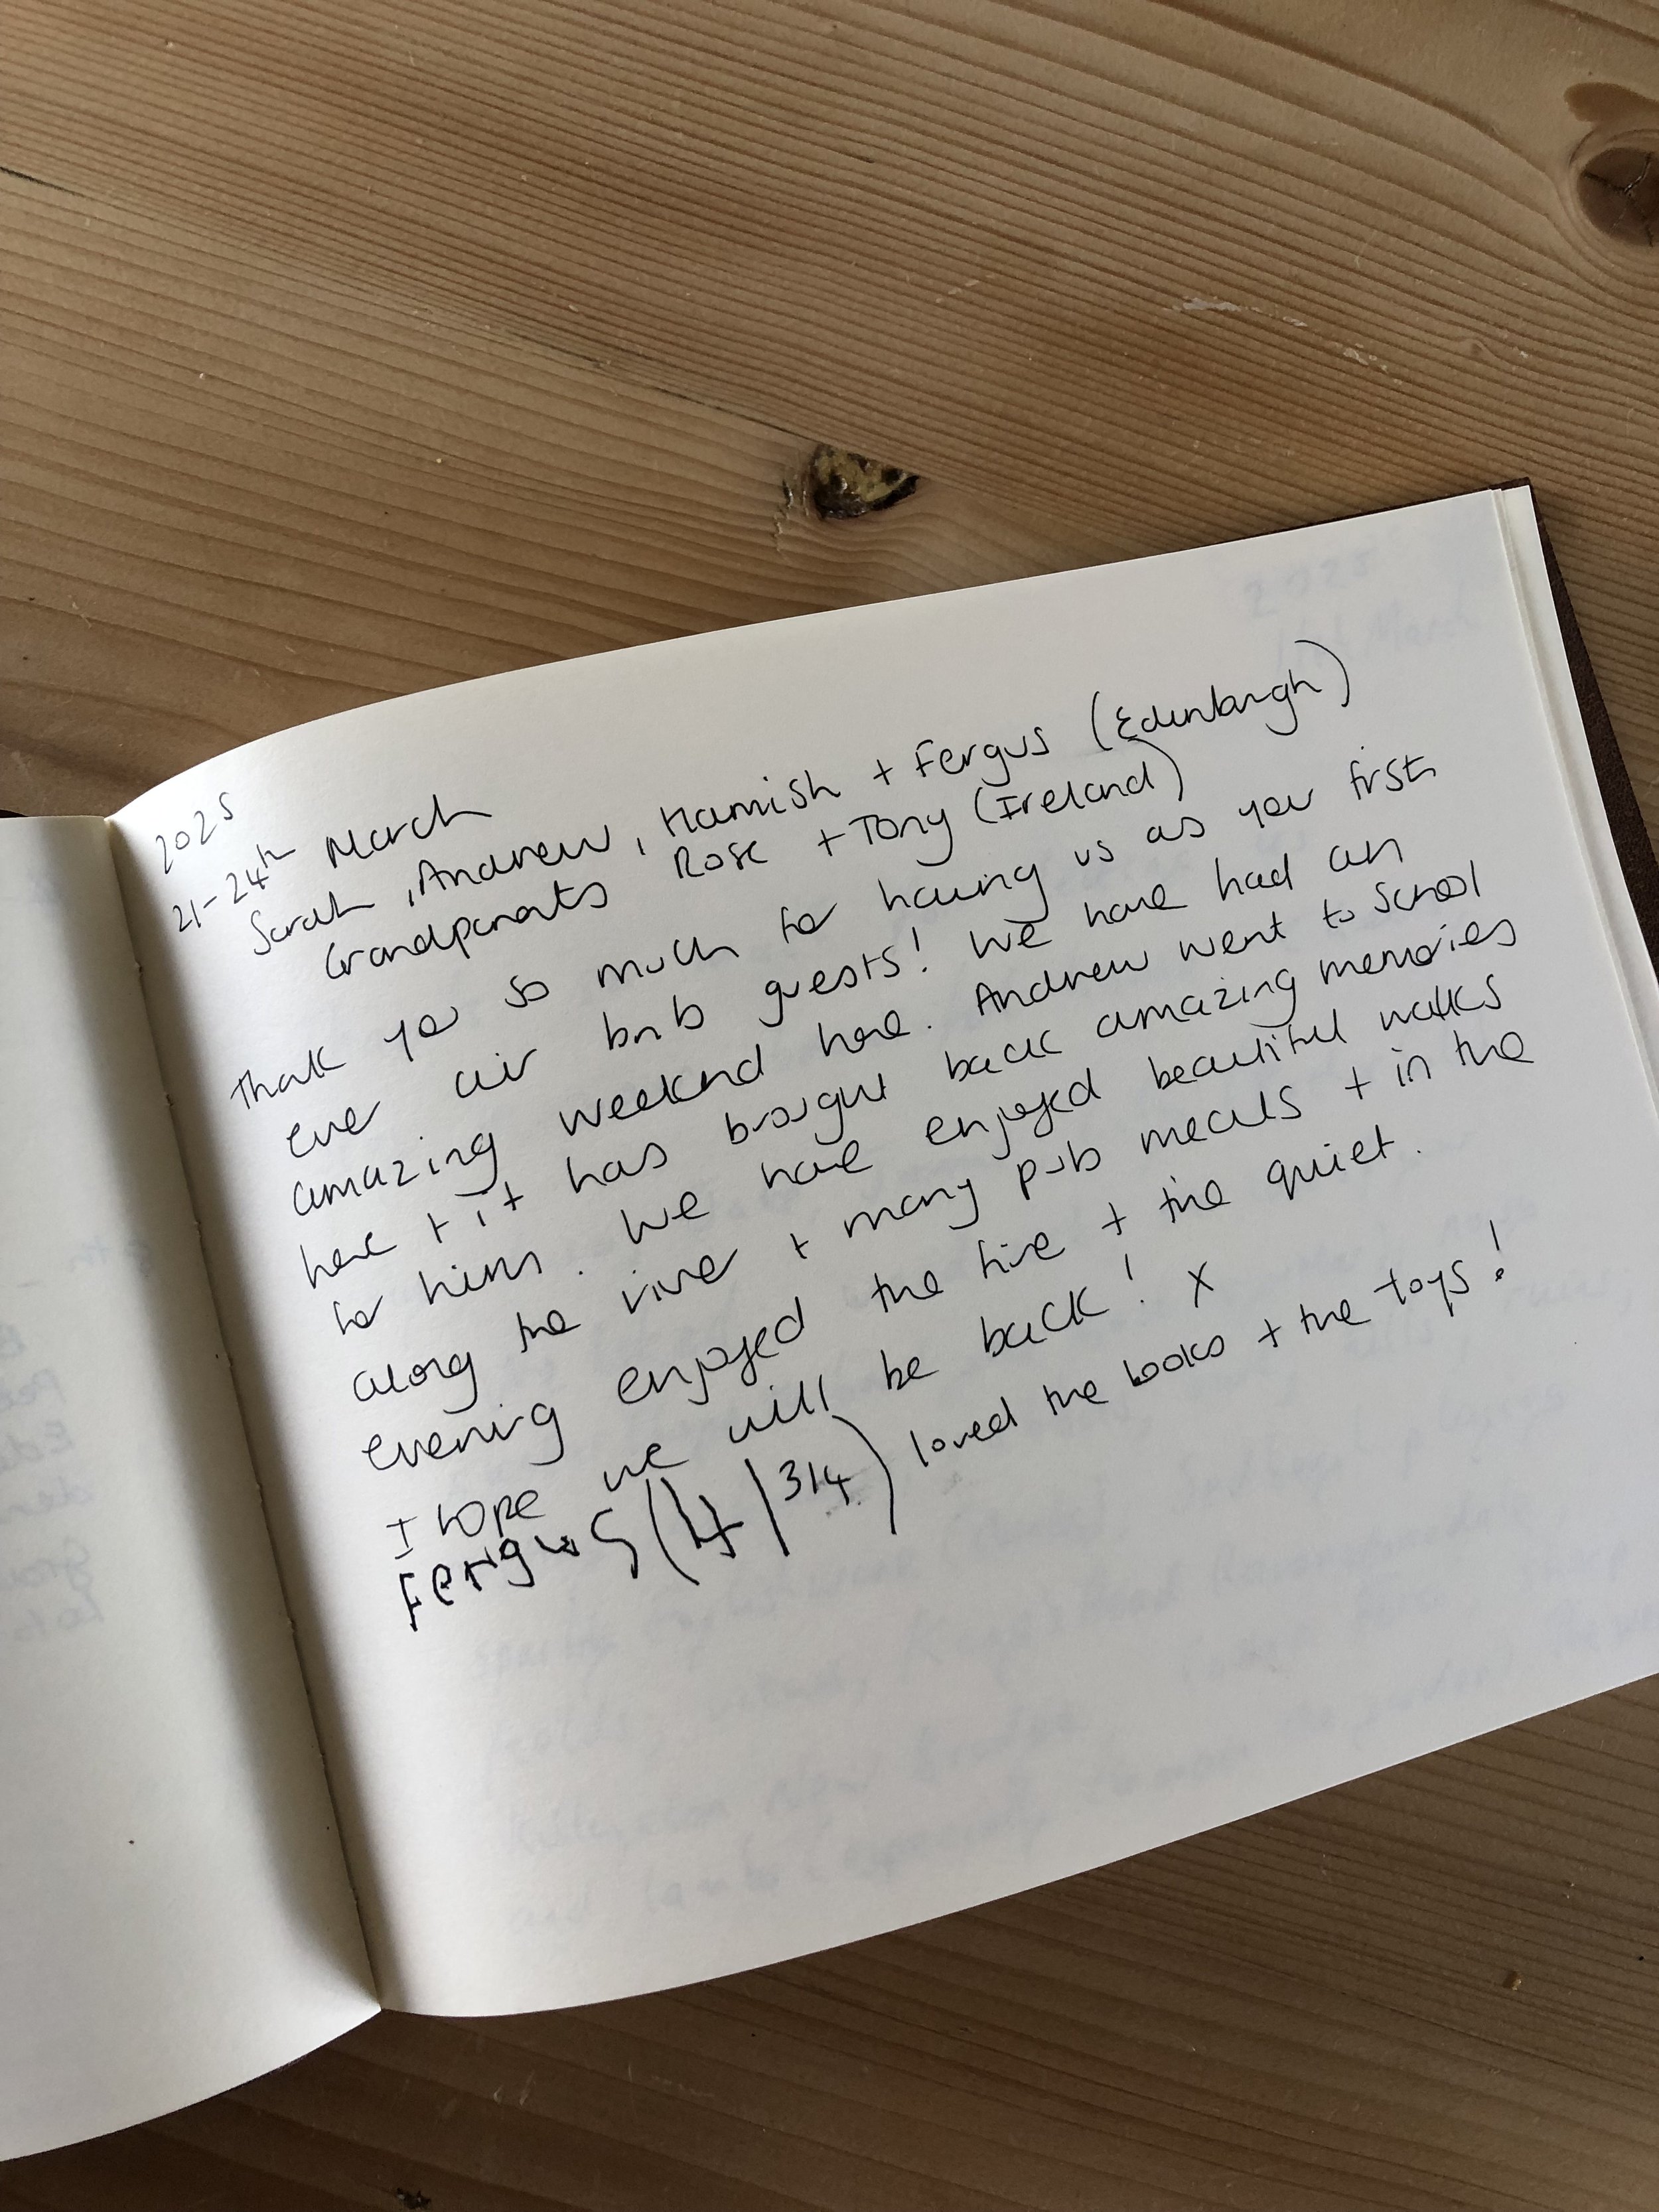 2025
21-24th March
Sarah, Andrew, Hamish + Fergus (Edinburgh)
Grandparents Rose + Tony (Ireland)
Thank you so much for having us as your first
ever air bnb guests! We have had an
amazing weekend here. Andrew went to school
here + it has brought back amazing memories
for him. We have enjoyed beautiful walks
along the river + many pub meals + in the
evening enjoyed the fire + the quiet.
I hope we will be back! X
Fergus (4 3/4) loved the books + the toys!